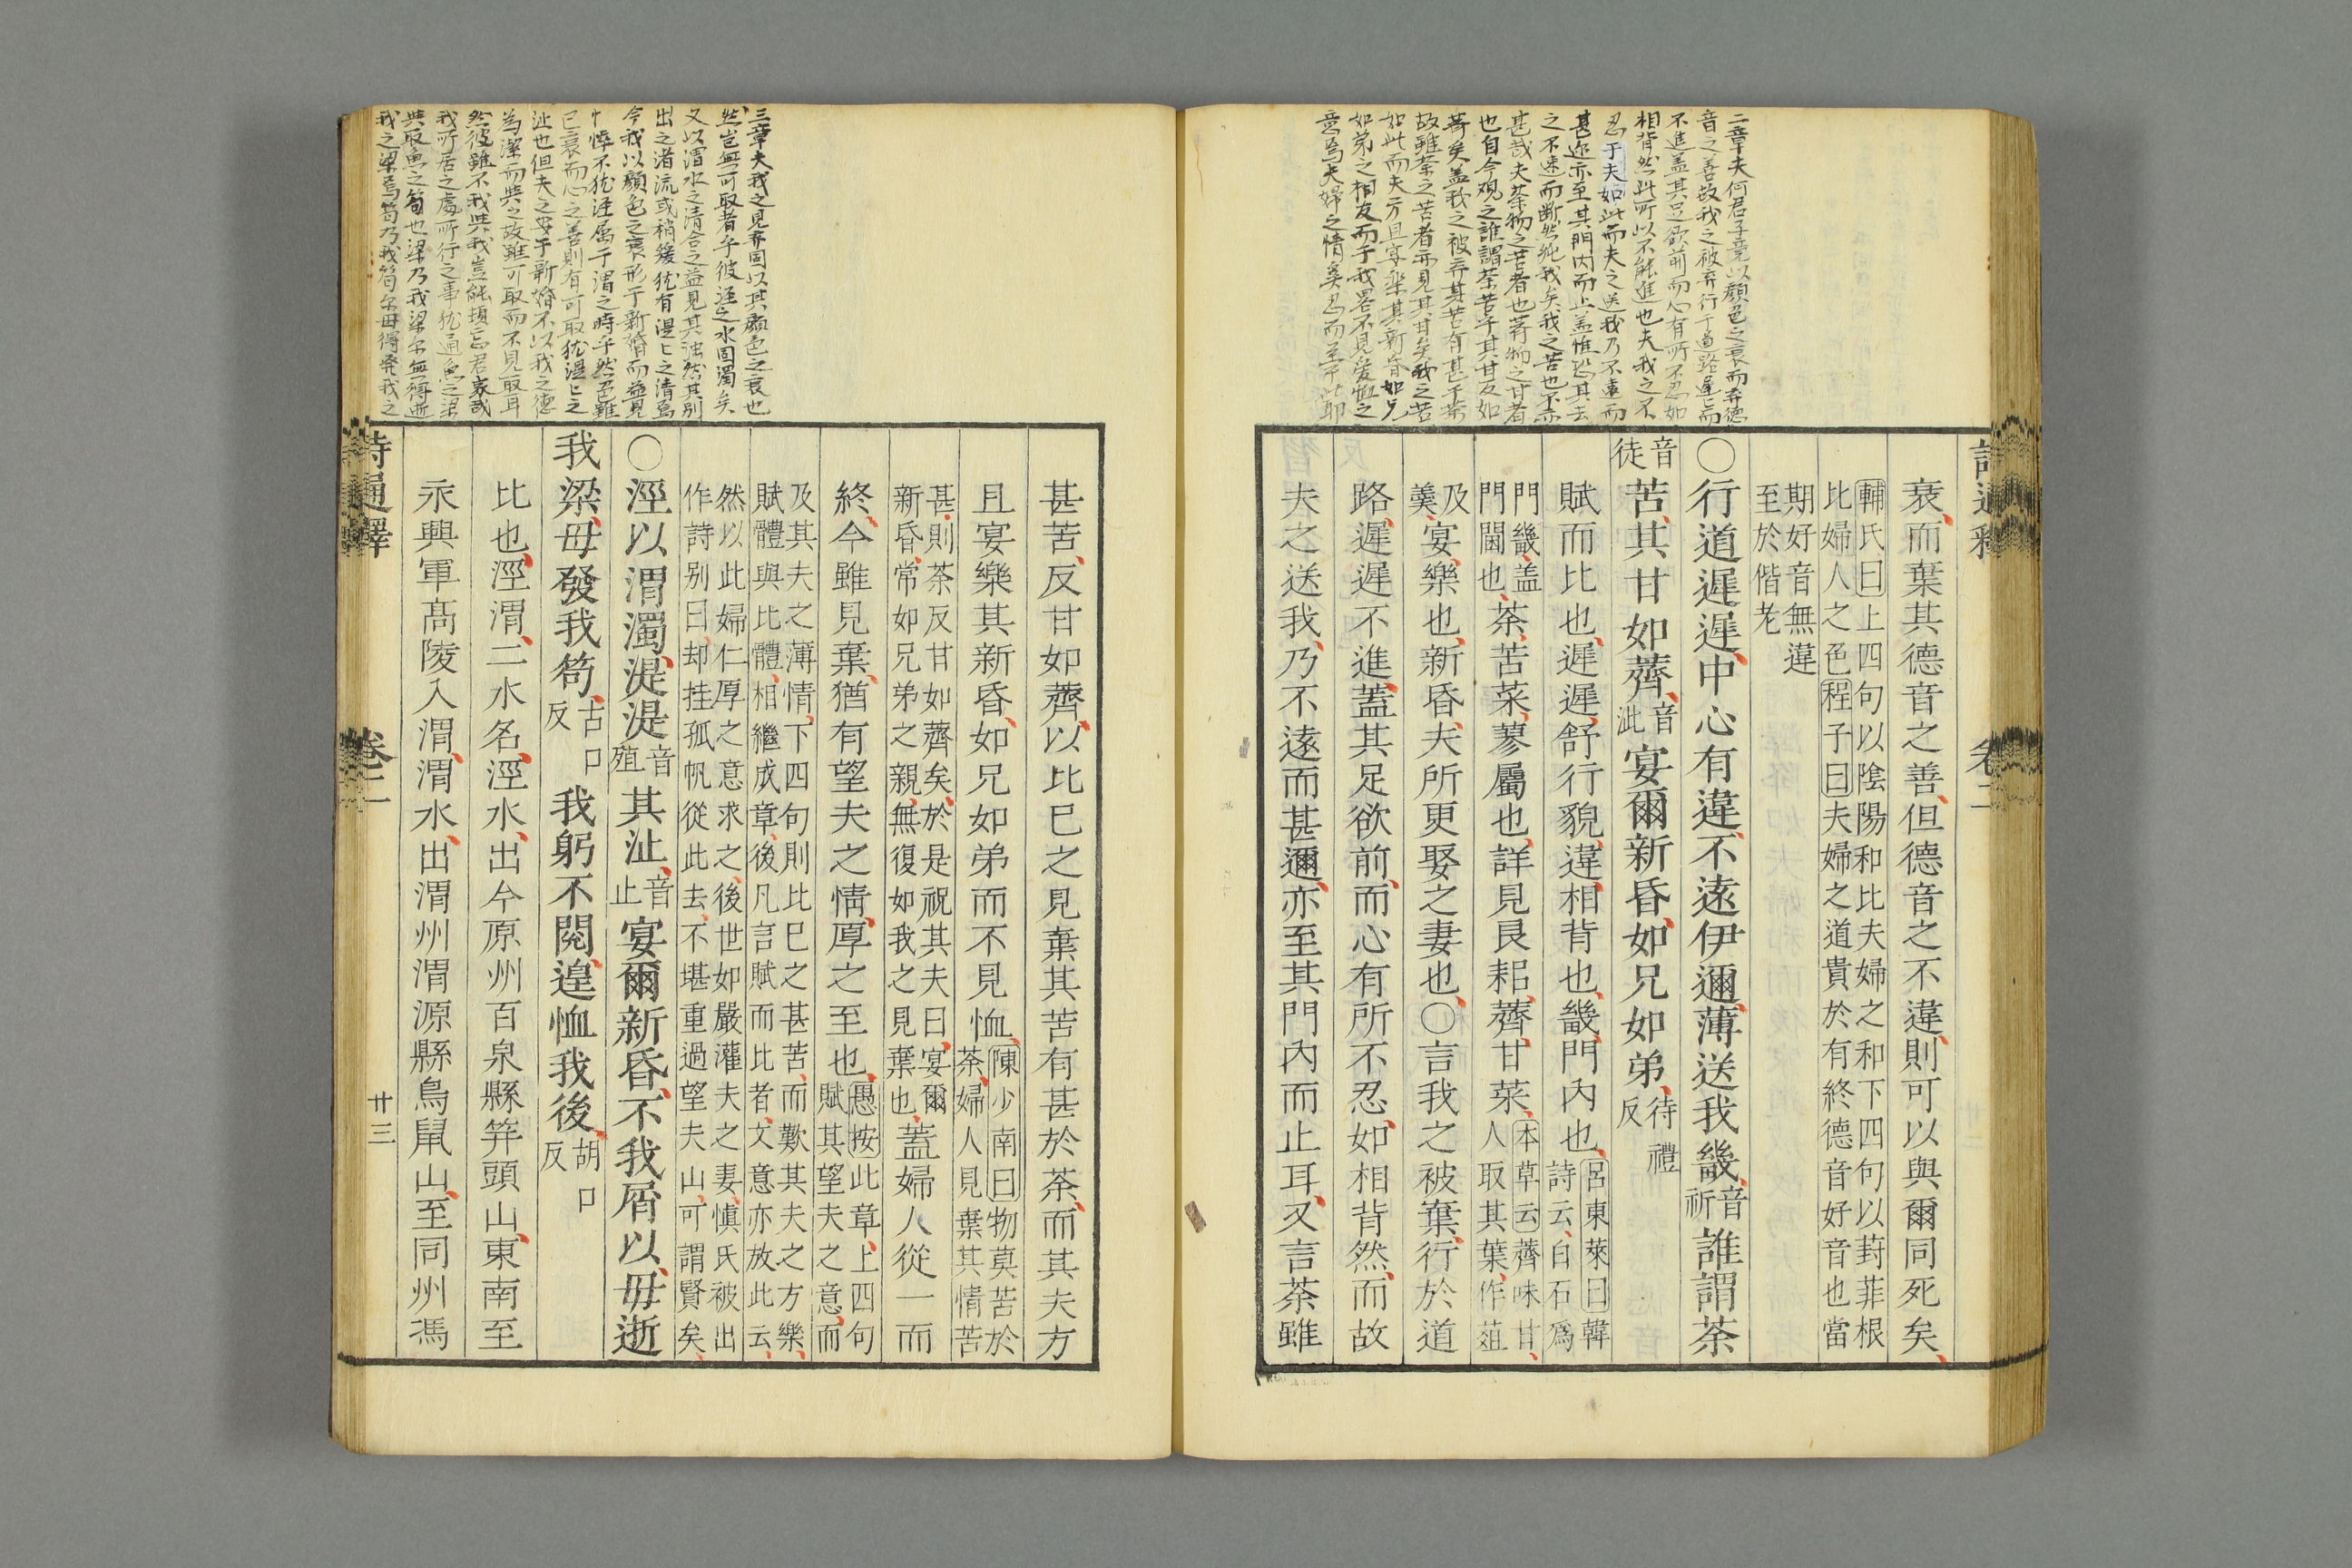 二章夫何君子竟以顏色之衰而弃德
音之善故我之被弃行于道路遲遲而
不進盖其足欲前而心有所不忍如
相背然此所以不能進也夫我之不
忍于夫如此而夫之送我乃不遠而
甚迩亦至其門内而止盖惟恐其去
之不速而断然絶我矣我之苦也不亦
甚哉夫荼物之苦者也薺物之甘者
也自今观之誰謂荼苦乎其甘反如
薺矣盖我之被弃其苦有甚于荼
故雖荼之苦者亦見其甘矣我之苦
如此而夫方且宴樂其新昏如兄
如弟之相友而于我畧不見愛恤之
意焉夫婦之情奚忍而至于此耶
詩通釋 卷二
衰而棄其德音之善但德音之不違則可以與爾同死矣
輔氏曰上四句以陰陽和比夫婦之和下四句以葑菲根
比婦人之色程子曰夫婦之道貴於有終德音好音也當
期好音無違
至於偕老
○行道遲遲中心有違不遠伊邇薄送我畿音祈誰謂荼
音徒苦其甘如薺音泚宴爾新昏如兄如弟待禮反
賦而比也遲遲舒行貌違相背也畿門內也呂東萊曰韓詩云白石爲
門畿盖門閫也荼苦菜蓼屬也詳見良耜薺甘菜本草云薺味甘人取其葉作葅
及羮宴樂也新昏夫所更娶之妻也○言我之被棄行於道
路遲遲不進蓋其足欲前而心有所不忍如相背然而故
夫之送我乃不遠而甚邇亦至其門內而止耳又言荼雖
三章夫我之見弃固以其顏色之衰也
然豈無可取者乎彼涇之水固濁矣
又以渭水之清合之益見其濁然其别
出之渚流或稍緩犹有湜湜之清焉
今我以顏色之衰形于新婚而益見
憔悴不犹涇屬于渭之時乎然色雖
已衰而心之善則有可取犹湜湜之
沚也但夫之安于新婚不以我之德
為潔而與之故雖可取而不見取耳
然彼雖不我與我豈能頓忘君家哉
我所居之處所行之事犹通魚之梁
與取魚之笱也梁乃我梁尔無得逝
我之梁焉笱乃我笱尔毋得發我之
甚苦反甘如薺以比巳之見棄其苦有甚於荼而其夫方
且宴樂其新昏如兄如弟而不見恤陳少南曰物莫苦於荼婦人見棄其情苦
甚則荼反甘如薺矣於是祝其夫曰宴爾新昏常如兄弟之親無復如我之見棄也蓋婦人從一而
終今雖見棄猶有望夫之情厚之至也愚按此章上四句賦其望夫之意而
及其夫之薄情下四句則比巳之甚苦而歎其夫之方樂
賦體與比體相繼成章後凡言賦而比者文意亦放此云
然以此婦仁厚之意求之後世如嚴灌夫之妻愼氏被出
作詩别曰却挂孤帆從此去不堪重過望夫山可謂賢矣
○涇以渭濁湜湜音殖其沚音止宴爾新昏不我屑以毋逝
我梁毋發我笱古口反我躬不閱遑恤我後胡口反
比也涇渭二水名涇水出今原州百泉縣笄頭山東南至
永興軍高陵入渭渭水出渭州渭源縣鳥鼠山至同州馮
詩通釋 卷二 廿三